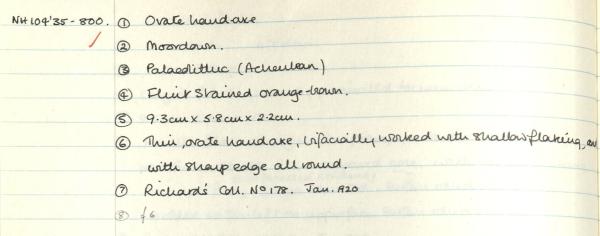 NH104'35-800. ① Ovate hand-axe
② Moordown.
③ Palaeolithic (Acheulean)
④ Flint stained orange-brown.
⑤ 9.3cm x 5.8cm x 2.2cm.
⑥ Thin, ovate handaxe, bifacially worked with shallow flaking, and
with sharp edge all round.
⑦ Richard's Coll. No 178. Jan. 1920
⑧ £6